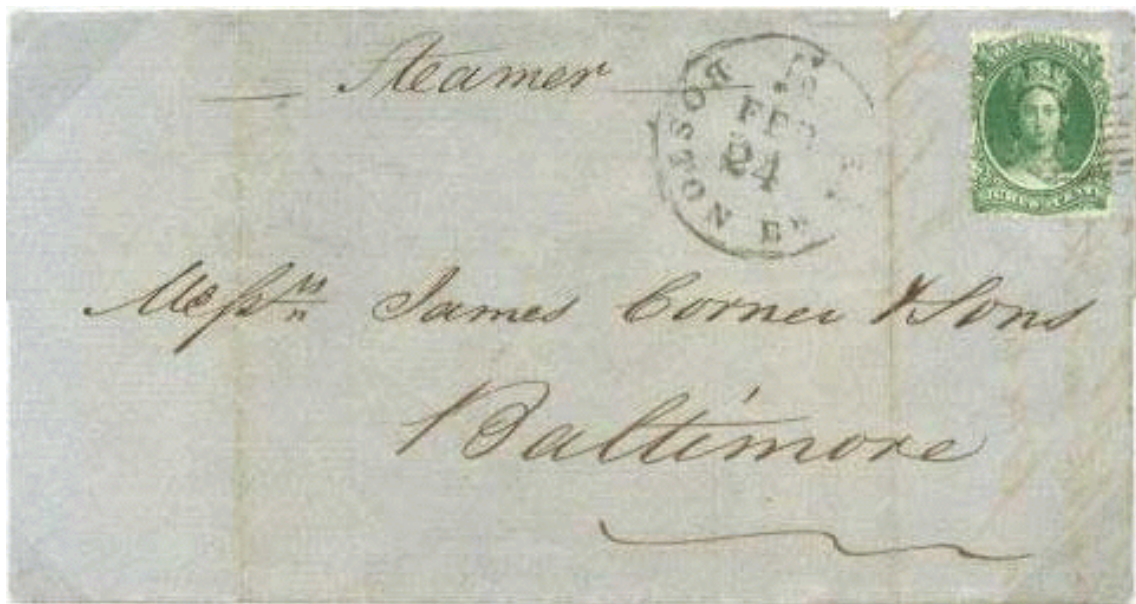 Steamer
BOSTON Br
FEB
24
Messrs James Corner & Sons
Baltimore